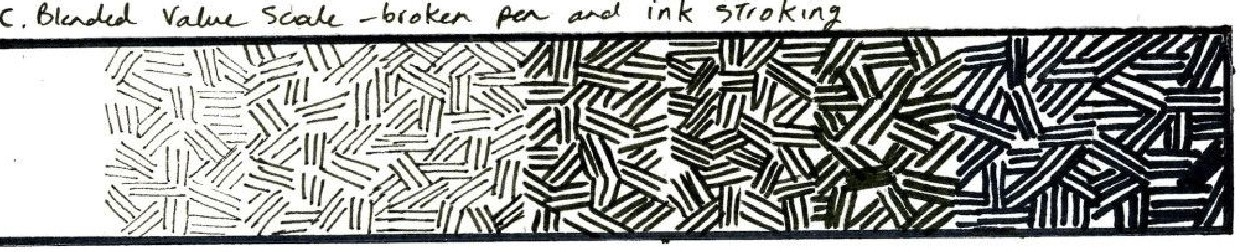 C. Blended Value Scale - broken pen and ink stroking